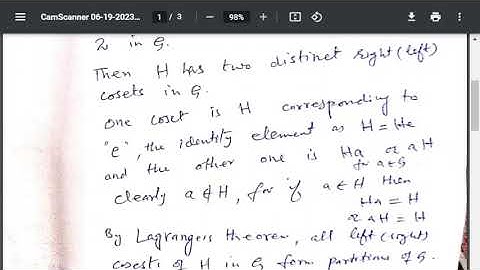 CamScanner 06-19-2023...
1 / 3
98%
2 in G.
Then H has two distinct right (left)
cosets in G.
One coset is H corresponding to
"e", the identity element as H = He
and the other one is Ha or aH
for a∈G
clearly a ∉ H, for if a ∈ H then
Ha = H
or aH = H
By Lagranges theorem, all left (right)
cosets of H in G form partitions of G.